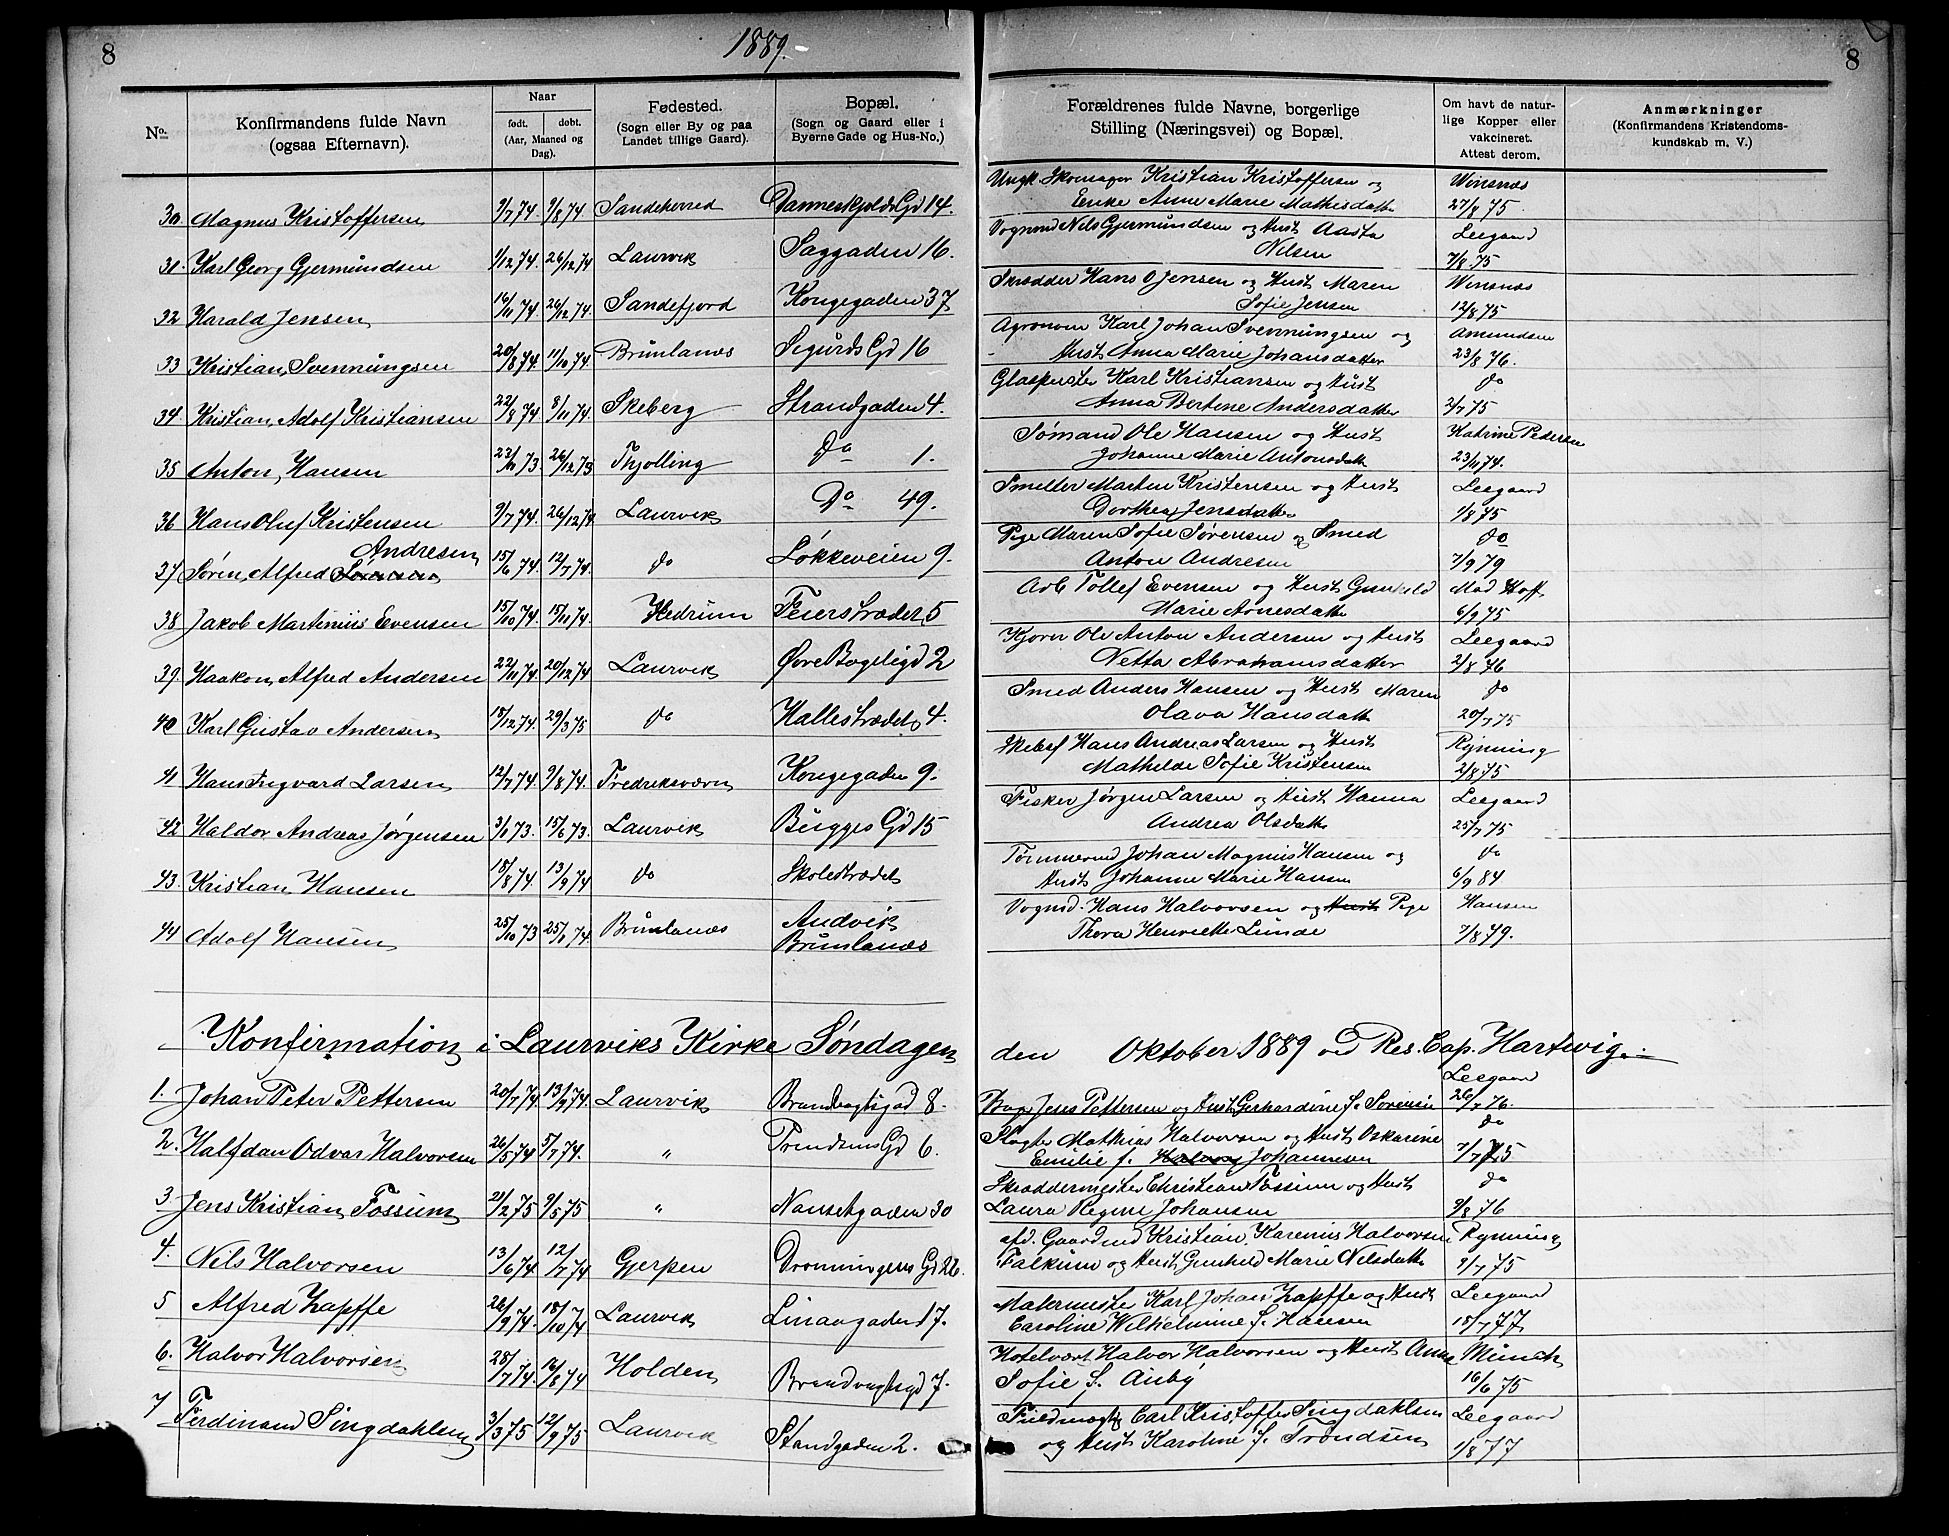 8
1889.
8
No.
Konfirmandens fulde Navn
(ogsaa Efternavn).
Naar
født. døbt.
(Aar, Maaned og
Dag).
Fødested.
(Sogn eller By og paa
Landet tillige Gaard).
Bopæl.
(Sogn og Gaard eller i
Byerne Gade og Hus-No.)
Forældrenes fulde Navne, borgerlige
Stilling (Næringsvei) og Bopæl.
Om havt de natur-
lige Kopper eller
vakcineret.
Attest derom.
Anmærkninger
(Konfirmandens Kristendoms-
kundskab m. V.)
30 Magnus Kristoffersen 9/7 74 9/8 74 Sandeherred Danneskjolds Gd 14. Ungk. Skomager Kristian Kristoffersen og Winsnes
Enke Anne Marie Mathisdatter 27/8 75.
31. Karl Georg Gjermundsen 1/12 74. 26/12 74 Laurvik Saggaden 16. Vognmd Nils Gjermundsen og Hust Aasta Leegaard
Nilsen 7/8 75
32 Harald Jensen 16/11 74. 26/12 74. Sandefjord Kongegaden 37 Skrædder Hans O Jensen og Hust Maren Winsnes
Sofie Jensen 12/8 75
33 Kristian Svennungsen 20/8 74. 11/10 74. Brunlanæs Sigurds Gd 16 Agronom Karl Johan Svennungsen og Amundsen
Hust Anna Marie Johansdatter 23/8 76.
34. Kristian Adolf Kristiansen 22/8 74 8/11 74. Skeberg Strandgaden 4. Glaspuster Karl Kristiansen og Hust do
Anna Bertine Andersdatter 2/7 75
35 Anton Hansen 23/11 73. 26/12 73 Thjolling do 1. Sømand Ole Hansen og Hust Katrine Pedersen
Johanne Marie Antonsdatt 23/11 74.
36 Hans Oluf Kristensen 9/7 74. 26/12 74. Laurvik Do 49. Smelter Martin Kristensen og Hust Leegaard
Dorthea Jensdatter 1/8 75
Andresen
37 Søren Alfred Sørensen 15/6 74. 12/7 74. do Løkkeveien 9. Pige Maren Sofie Sørensen og Smed do
Anton Andresen 7/9 79
38 Jakob Martinius Evensen 15/10 74. 15/11 74. Hedrum Feierstrædet 5 Arb Tollef Evensen og Hust Gunhild Mad Hoff
Marie Arnesdatter 6/9 75
39. Haakon Alfred Andersen 22/11 74. 20/12 74 Laurvik Øvre Bøgeligd 2 Kjører Ole Anton Andersen og Hust Leegaard
Netta Abrahamsdatter 2/8 76
40 Karl Gustav Andersen 15/12 74. 29/3 75 do Hallestrædet 4. Smed Anders Hansen og Hust Maren do
Olava Hansdatt 20/7 75
41 Hans Ingvard Larsen 12/7 74. 9/8 74. Fredriksværn Kongegaden 9. Hans Andreas Larsen og Hust Rynning
Mathilde Sofie Kristensen 2/8 75
42 Haldor Andreas Jørgensen 3/1 73. 15/6 73. Laurvik Bugges Gd 15 Fisker Jørgen Larsen og Hust Hanna Leegaard
Andrea Olsdatter 25/7 75
43. Kristian Hansen 18/8 74. 13/9 74 do Skolestrædet Tømmermd Johan Magnus Hansen og do
Hust Johanne Marie Hansen 6/9 84
44 Adolf Hansen 25/10 73 25/1 74. Brunlanæs Andvik Vognsd. Hans Halvorsen og Hust Pige Hansen
Brunlanæs Thora Henriette Lunde 7/8 79.
Konfirmation i Laurviks Kirke Søndagen den Oktober 1889 ved Res. Cap. Hartwig.
1. Johan Peter Pettersen 20/7 74. 13/9 74. Laurvik Brandvagtsgad 8. Jens Pettersen og Hust Gerhardine f. Sørensen Leegaard
26/7 76.
2. Halfdan Odvar Halvorsen 26/5 74 5/7 74. " Trondsens Gd 6. Slagter Mathias Halvorsen og Hust Oskarine do
Emilie f. Johannesen 7/7 75
3. Jens Kristian Fossum 21/2 75 9/5 75 " Nansetgaden 30 Skræddermester Christian Fossum og Hust do
Laura Regine Johansen 9/8 76
4. Nils Halvorsen 13/6 74 12/7 74 Gjerpen Dronningens Gd 26. afd. Gaardmd Kristian Karenius Halvorsen Rynning
Falkum og Hust Gunhild Marie Nilsdatter 9/7 75
5 Alfred Zapffe 26/9 74. 18/10 74 Laurvik Linaagaden 17. Malermester Karl Johan Zapffe og Hust Leegaard
Caroline Wilhelmine f. Hansen 18/7 77
6. Halvor Halvorsen 28/7 74. 16/8 74 Holden Brandvagtsgd 7. Hotelvært Halvor Halvorsen og Hust Anna Münch
Sofie f. Auby 16/6 75
7 Ferdinand Singdahlsen 3/3 75 12/9 75 Laurvik Standgaden 2. Fuldmægtig Carl Kristoffer Singdahlsen Leegaard
og Hust Karoline f. Trondsen 1/8 77